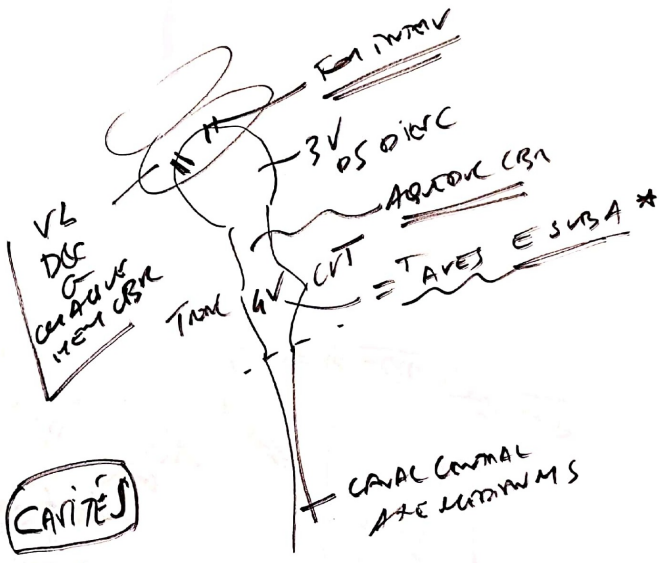 FOR INTERV
3V
DS DIENC
AQUEDUC CBR
VL
DCC
CHAQUE
HEM CBR
TRONC 4V CVT = T AVEC E SUBA *
CANAL CENTRAL
AXE MEDIAN MS
CAVITÉS